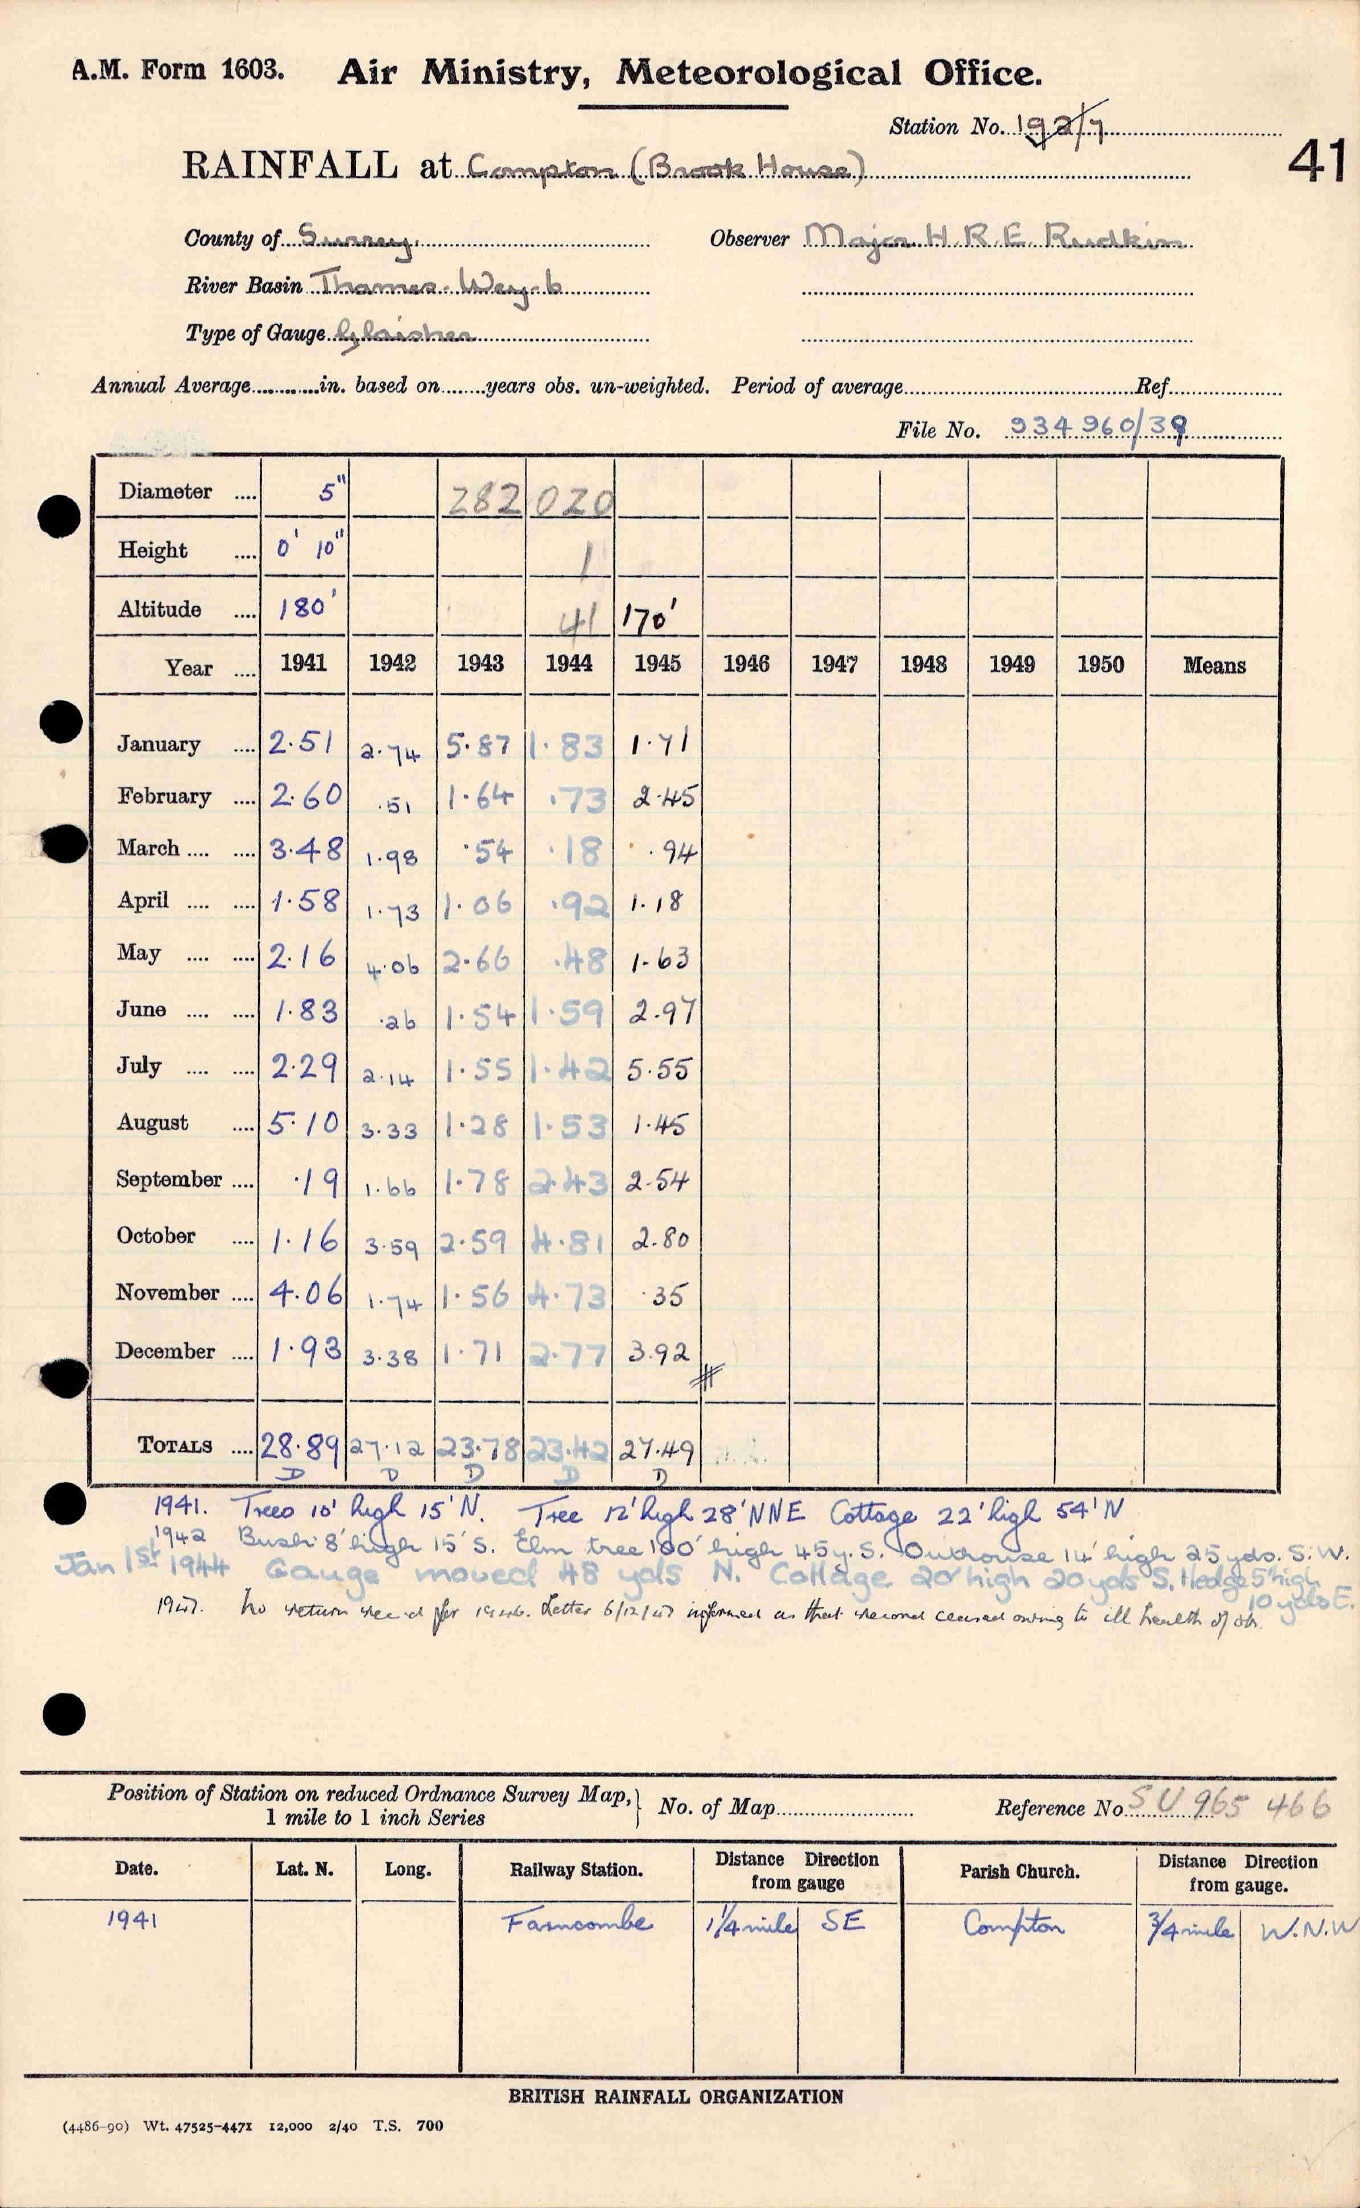 A.M. Form 1603. Air Ministry, Meteorological Office.
Station No. 192/7
41
RAINFALL at Compton (Brook House)
County of Surrey. Observer Major H.R.E. Rudkin
River Basin Thames-Wey-b
Type of Gauge Glaisher
Annual Average............in. based on........years obs. un-weighted. Period of average Ref.
File No. 934960/39
Diameter .... 5" 282 020
Height .... 0' 10" 1
Altitude .... 180' 41 170'
Year .... 1941 1942 1943 1944 1945 1946 1947 1948 1949 1950 Means
January .... 2.51 2.74 5.87 1.83 1.71
February .... 2.60 .51 1.64 .73 2.45
March .... .... 3.48 1.98 .54 .18 .94
April .... .... 1.58 1.73 1.06 .92 1.18
May .... .... 2.16 4.06 2.66 .48 1.63
June .... .... 1.83 .26 1.54 1.59 2.97
July .... .... 2.29 2.14 1.55 1.42 5.55
August .... 5.10 3.33 1.28 1.53 1.45
September .... .19 1.66 1.78 2.43 2.54
October .... 1.16 3.59 2.59 4.81 2.80
November .... 4.06 1.74 1.56 4.73 .35
December .... 1.93 3.38 1.71 2.77 3.92
TOTALS .... 28.89 27.12 23.78 23.42 27.49
D D D D D
1941. Trees 10' high 15' N. Tree 12' high 28' NNE Cottage 22' high 54' N
1942 Bush 8' high 15' S. Elm tree 100' high 45y. S. Outhouse 14' high 25 yds. S.W.
Jan 1st 1944 Gauge moved 48 yds N. Cottage 20' high 20yds S. Hedge 5' high
10 yds E.
1947. No return rec'd for 1946. Letter 6/12/47 informed us that record ceased owing to ill health of obs.
Position of Station on reduced Ordnance Survey Map,
1 mile to 1 inch Series
No. of Map Reference No. SU 965 466
Date. Lat. N. Long. Railway Station. Distance Direction from gauge Parish Church. Distance Direction from gauge.
1941 Farncombe 1 1/4 mile SE Compton 3/4 mile W.N.W
BRITISH RAINFALL ORGANIZATION
(4486-90) Wt. 47525-4471 12,000 2/40 T.S. 700